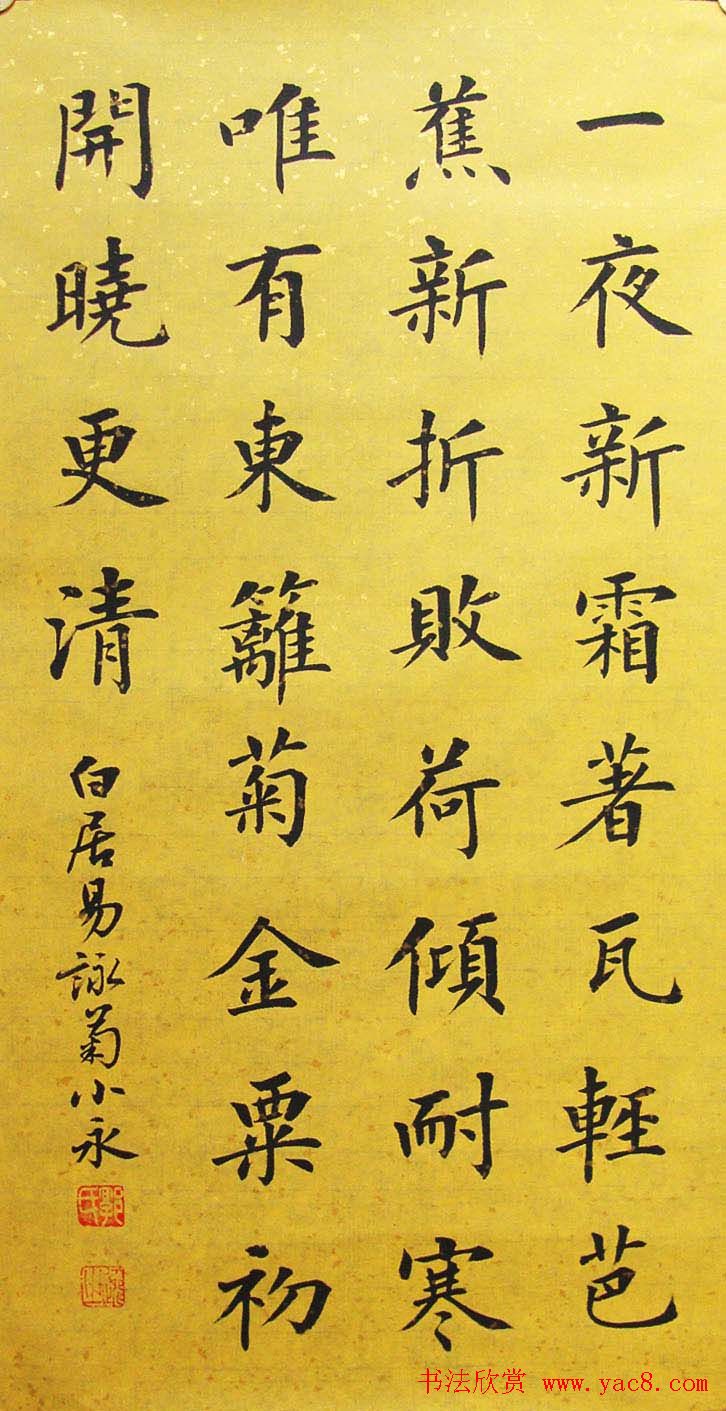 一夜新霜著瓦輕芭
蕉新折敗荷傾耐寒
唯有東籬菊金粟初
開曉更清
白居易詠菊小永
书法欣赏 www.yac8.com